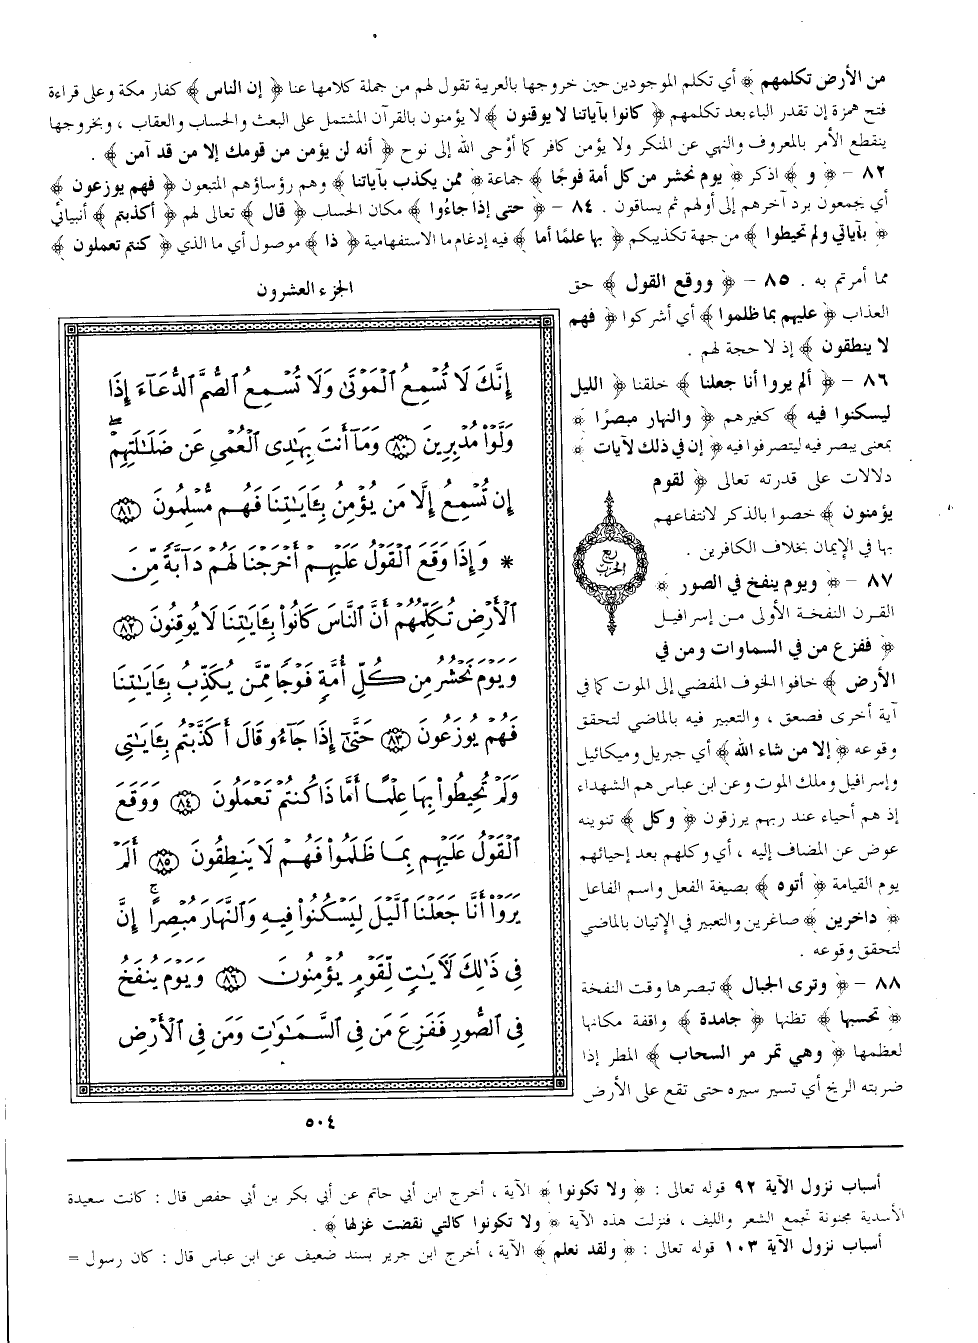 من الأرض تكلمهم ﴾ أي تكلم الموجودين حين خروجها بالعربية تقول لهم من جملة كلامها عنا ﴿ إن الناس ﴾ كفار مكة وعلى قراءة
فتح همزة إن تقدر الباء بعد تكلمهم ﴿ كانوا بآياتنا لا يوقنون ﴾ لا يؤمنون بالقرآن المشتمل على البعث والحساب والعقاب ، وبخروجها
ينقطع الأمر بالمعروف والنهي عن المنكر ولا يؤمن كافر كما أوْحى الله إلى نوح ﴿ أنه لن يؤمن من قومك إلا من قد آمن ﴾ .
٨٢ – ﴿ و ﴾ اذكر ﴿ يوم نحشر من كل أمة فوجًا ﴾ جماعة ﴿ ممن يكذب بآياتنا ﴾ وهم رؤساؤهم المتبعون ﴿ فهم يوزعون ﴾
أي يجمعون برد آخرهم إلى أولهم ثم يساقون . ٨٤ – ﴿ حتى إذا جاءُوا ﴾ مكان الحساب ﴿ قال ﴾ تعالى لهم ﴿ أكذبتم ﴾ أنبيائي
﴿ بآياتي ولم تحيطوا ﴾ من جهة تكذيبكم ﴿ بها علمًا أما ﴾ فيه إدغام ما الاستفهامية ﴿ ذا ﴾ موصول أي ما الذي ﴿ كنتم تعملون ﴾
مما أمرتم به . ٨٥ – ﴿ ووقع القول ﴾ حق
العذاب ﴿ عليهم بما ظلموا ﴾ أي أشركوا ﴿ فهم
لا ينطقون ﴾ إذ لا حجة لهم .
٨٦ – ﴿ ألم يروا أنا جعلنا ﴾ خلقنا ﴿ الليل
ليسكنوا فيه ﴾ كغيرهم ﴿ والنهار مبصرًا ﴾
بمعنى يبصر فيه ليتصرفوا فيه ﴿ إن في ذلك لآيات ﴾
دلالات على قدرته تعالى ﴿ لقوم
يؤمنون ﴾ خصوا بالذكر لانتفاعهم
بها في الإيمان بخلاف الكافرين .
٨٧ – ﴿ ويوم ينفخ في الصور ﴾
القرن النفخة الأولى من إسرافيل
﴿ ففزع من في السماوات ومن في
الأرض ﴾ خافوا الخوف المفضي إلى الموت كما في
آية أخرى فصعق ، والتعبير فيه بالماضي لتحقق
وقوعه ﴿ إلا من شاء الله ﴾ أي جبريل وميكائيل
وإسرافيل وملك الموت وعن ابن عباس هم الشهداء
إذ هم أحياء عند ربهم يرزقون ﴿ وكل ﴾ تنوينه
عوض عن المضاف إليه ، أي وكلهم بعد إحيائهم
يوم القيامة ﴿ أتوه ﴾ بصيغة الفعل واسم الفاعل
﴿ داخرين ﴾ صاغرين والتعبير في الإتيان بالماضي
لتحقق وقوعه .
٨٨ – ﴿ وترى الجبال ﴾ تبصرها وقت النفخة
﴿ تحسبها ﴾ تظنها ﴿ جامدة ﴾ واقفة مكانها
لعظمها ﴿ وهي تمر مر السحاب ﴾ المطر إذا
ضربته الريح أي تسير سيره حتى تقع على الأرض
ربع
الحزب
الجزء العشرون
إِنَّكَ لَا تُسْمِعُ الْمَوْتَىٰ وَلَا تُسْمِعُ الصُّمَّ الدُّعَآءَ إِذَا
وَلَّوْا مُدْبِرِينَ ٨٠ وَمَآ أَنتَ بِهَادِى الْعُمْىِ عَن ضَلَٰلَتِهِمْ ۖ
إِن تُسْمِعُ إِلَّا مَن يُؤْمِنُ بِـَٔايَٰتِنَا فَهُم مُّسْلِمُونَ ٨١
* وَإِذَا وَقَعَ الْقَوْلُ عَلَيْهِمْ أَخْرَجْنَا لَهُمْ دَآبَّةً مِّنَ
الْأَرْضِ تُكَلِّمُهُمْ أَنَّ النَّاسَ كَانُوا۟ بِـَٔايَٰتِنَا لَا يُوقِنُونَ ٨٢
وَيَوْمَ نَحْشُرُ مِن كُلِّ أُمَّةٍ فَوْجًا مِّمَّن يُكَذِّبُ بِـَٔايَٰتِنَا
فَهُمْ يُوزَعُونَ ٨٣ حَتَّىٰٓ إِذَا جَآءُو قَالَ أَكَذَّبْتُم بِـَٔايَٰتِى
وَلَمْ تُحِيطُوا۟ بِهَا عِلْمًا أَمَّاذَا كُنتُمْ تَعْمَلُونَ ٨٤ وَوَقَعَ
الْقَوْلُ عَلَيْهِم بِمَا ظَلَمُوا۟ فَهُمْ لَا يَنطِقُونَ ٨٥ أَلَمْ
يَرَوْا۟ أَنَّا جَعَلْنَا الَّيْلَ لِيَسْكُنُوا۟ فِيهِ وَالنَّهَارَ مُبْصِرًا ۚ إِنَّ
فِى ذَٰلِكَ لَآيَٰتٍ لِّقَوْمٍ يُؤْمِنُونَ ٨٦ وَيَوْمَ يُنفَخُ
فِى الصُّورِ فَفَزِعَ مَن فِى السَّمَٰوَٰتِ وَمَن فِى الْأَرْضِ
٥٠٤
أسباب نزول الآية ٩٢ قوله تعالى : ﴿ ولا تكونوا ﴾ الآية ، أخرج ابن أبي حاتم عن أبي بكر بن أبي حفص قال : كانت سعيدة
الأسدية مجنونة تجمع الشعر والليف ، فنزلت هذه الآية ﴿ ولا تكونوا كالتي نقضت غزلها ﴾ .
أسباب نزول الآية ١٠٣ قوله تعالى : ﴿ ولقد نعلم ﴾ الآية ، أخرج ابن جرير بسند ضعيف عن ابن عباس قال : كان رسول =